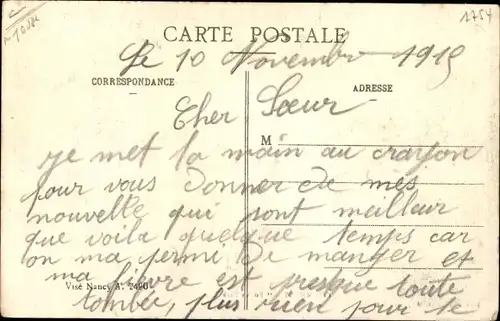 1754
CARTE POSTALE
Le 10 Novembr 1915
CORRESPONDANCE
ADRESSE
Cher Sœur
M
Je met la main au crayon
pour vous donner de mes
nouvelle qui sont meilleur
que voila quelque temps car
on ma permi de manger et
ma fièvre est presque toute
Visé Nancy A. 2490
tombée, plus rien pour le